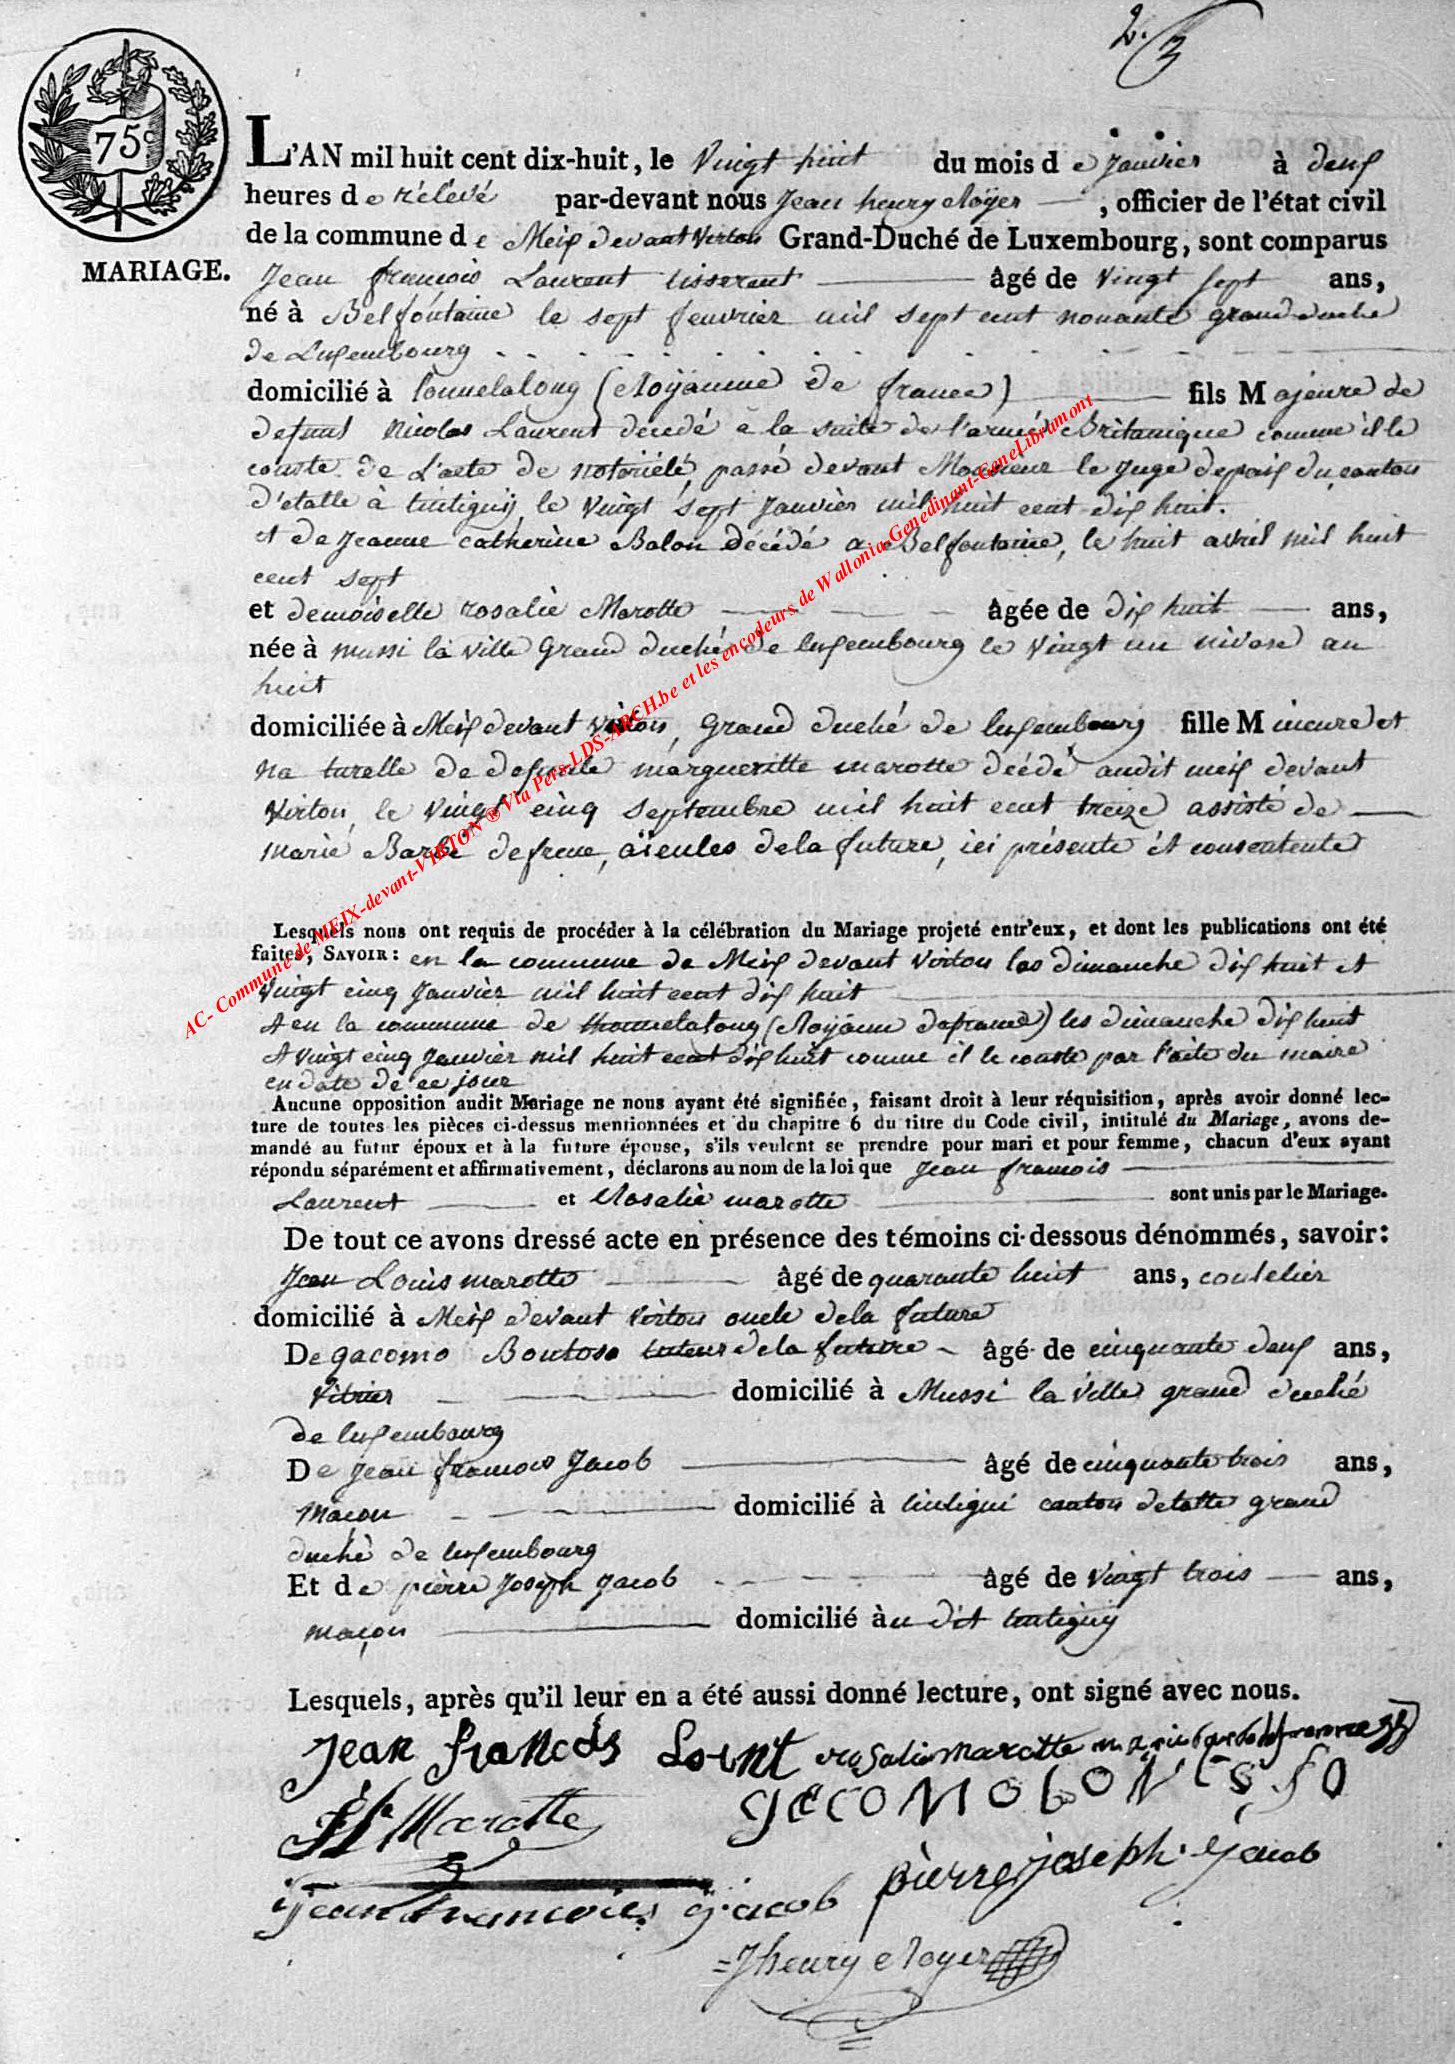 2. 3
75c
MARIAGE.
L'AN mil huit cent dix-huit, le Vingt huit du mois de janvier à deux
heures de rélevé par-devant nous Jean henry Noÿer, officier de l'état civil
de la commune de Meix devant Virton Grand-Duché de Luxembourg, sont comparus
Jean francois Laurent tisserent âgé de vingt sept ans,
né à Belfontaine le sept feuvrier mil sept cent nonante grand duche
de Luxembourg
domicilié à tonnelalong (Roÿaume de france) fils Majeure de
defunt Nicolas Laurent decedé à la suite de l'armée Britanique comme il le
conste de L'acte de notoriété, passé devant Monsieur le juge depaix du canton
d'etalle à tintigny le vingt sept janvier mil huit cent dix huit.
et de jeanne catherine Balon décédé a Belfontaine, le huit avril mil huit
cent sept
et demoiselle rosalie Marotte âgée de dix huit ans,
née à mussi la ville Grand duché de luxembourg le vingt un nivose an
huit
domiciliée à Meix devant virton, Grand duché de luxembourg fille Mineure et
na turelle de defunte margueritte marotte décédé audit meix devant
virton, le vingt cinq septembre mil huit cent treize assisté de
marie Barbe defrene, aïeules dela future, ici présente et consentente
Lesquels nous ont requis de procéder à la célébration du Mariage projeté entr'eux, et dont les publications ont été
faites, SAVOIR: en la commune de Meix devant virton les dimanche dix huit et
vingt cinq janvier mil huit cent dix huit
et en la commune de thonnelalong (Roÿaum defrance) les dimanche dix huit
et vingt cinq janvier mil huit cent dix huit comme il le conste par l'acte du maire
en date de ce jour
Aucune opposition audit Mariage ne nous ayant été signifiée, faisant droit à leur réquisition, après avoir donné lec-
ture de toutes les pièces ci-dessus mentionnées et du chapitre 6 du titre du Code civil, intitulé du Mariage, avons de-
mandé au futur époux et à la future épouse, s'ils veulent se prendre pour mari et pour femme, chacun d'eux ayant
répondu séparément et affirmativement, déclarons au nom de la loi que Jean francois
Laurent et Rosalie marotte sont unis par le Mariage.
De tout ce avons dressé acte en présence des témoins ci-dessous dénommés, savoir:
Jean Louis marotte âgé de quarante huit ans, coutelier
domicilié à Meix devant virton oncle dela future
De gacomo Bontoso tuteur dela future âgé de cinquante deux ans,
vitrier domicilié à Mussi la ville grand duché
de luxembourg
De jean francois jacob âgé de cinquante trois ans,
maçon domicilié à tintigni canton detalle grand
duché de luxembourg
Et de pierre joseph jacob âgé de vingt trois ans,
maçon domicilié àu dit tintigny
Lesquels, après qu'il leur en a été aussi donné lecture, ont signé avec nous.
jean francois Lorent rosalie marotte
Marotte
jean francois jacob pierre joseph jacob
J henry Noyer
AC- Commune de MEIX-devant-VIRTON ® Via Pers-LDS-ARCH.be et les encodeurs de Wallonia-Genedinant-GeneLibramont